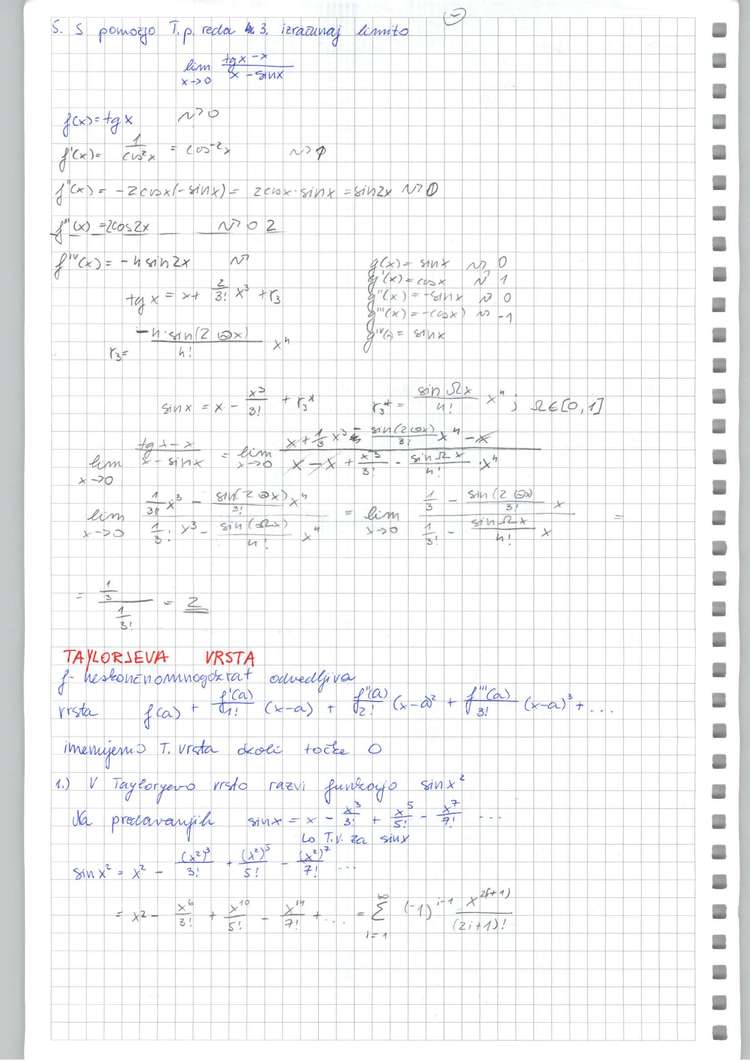 5. S pomočjo T.p. reda 3, izračunaj limito
lim x→0 (tgx - x)/(x - sinx)
f(x) = tgx ~> 0
f'(x) = 1/cos²x = cos⁻²x ~> 1
f''(x) = -2cosx(-sinx) = 2cosx·sinx = sin2x ~> 0
f'''(x) = 2cos2x ~> 0 2
f^IV(x) = -4sin2x ~>
g(x) = sinx ~> 0
g'(x) = cosx ~> 1
g''(x) = -sinx ~> 0
g'''(x) = -(cosx) ~> -1
g^IV(x) = sinx
tgx = x + 2/3! x³ + r₃
r₃ = (-4·sin(2Θx))/4! x⁴
sinx = x - x³/3! + r₃* r₃* = (sinΩx)/4! x⁴ ; Ω∈[0,1]
lim x→0 (tgx - x)/(x - sinx) = lim x→0 (x + 1/3 x³ - sin(2Θx)/3! x⁴ - x)/(x - x + x³/3! - sinΩx/4! · x⁴)
lim x→0 (1/3 x³ - sin(2Θx)/3! x⁴)/(1/3! x³ - sin(Ωx)/4! x⁴) = lim x→0 (1/3 - sin(2Θx)/3! x)/(1/3! - sinΩx/4! x) =
= (1/3)/(1/3!) = 2
TAYLORJEVA VRSTA
f - neskončnomnogokrat odvedljiva
vrsta f(a) + f'(a)/1! (x-a) + f''(a)/2! (x-a)² + f'''(a)/3! (x-a)³ + ...
imenujemo T. vrsta okoli točke 0
1.) V Tayloryevo vrsto razvi funkcijo sinx²
Na predavanjih sinx = x - x³/3! + x⁵/5! - x⁷/7! ...
↳ T.V. za sinx
sinx² = x² - (x²)³/3! + (x²)⁵/5! - (x²)⁷/7! ...
= x² - x⁶/3! + x¹⁰/5! - x¹⁴/7! + ... = Σ i=1 ∞ (-1)^(i-1) x^(2(i+1))/(2i+1)!